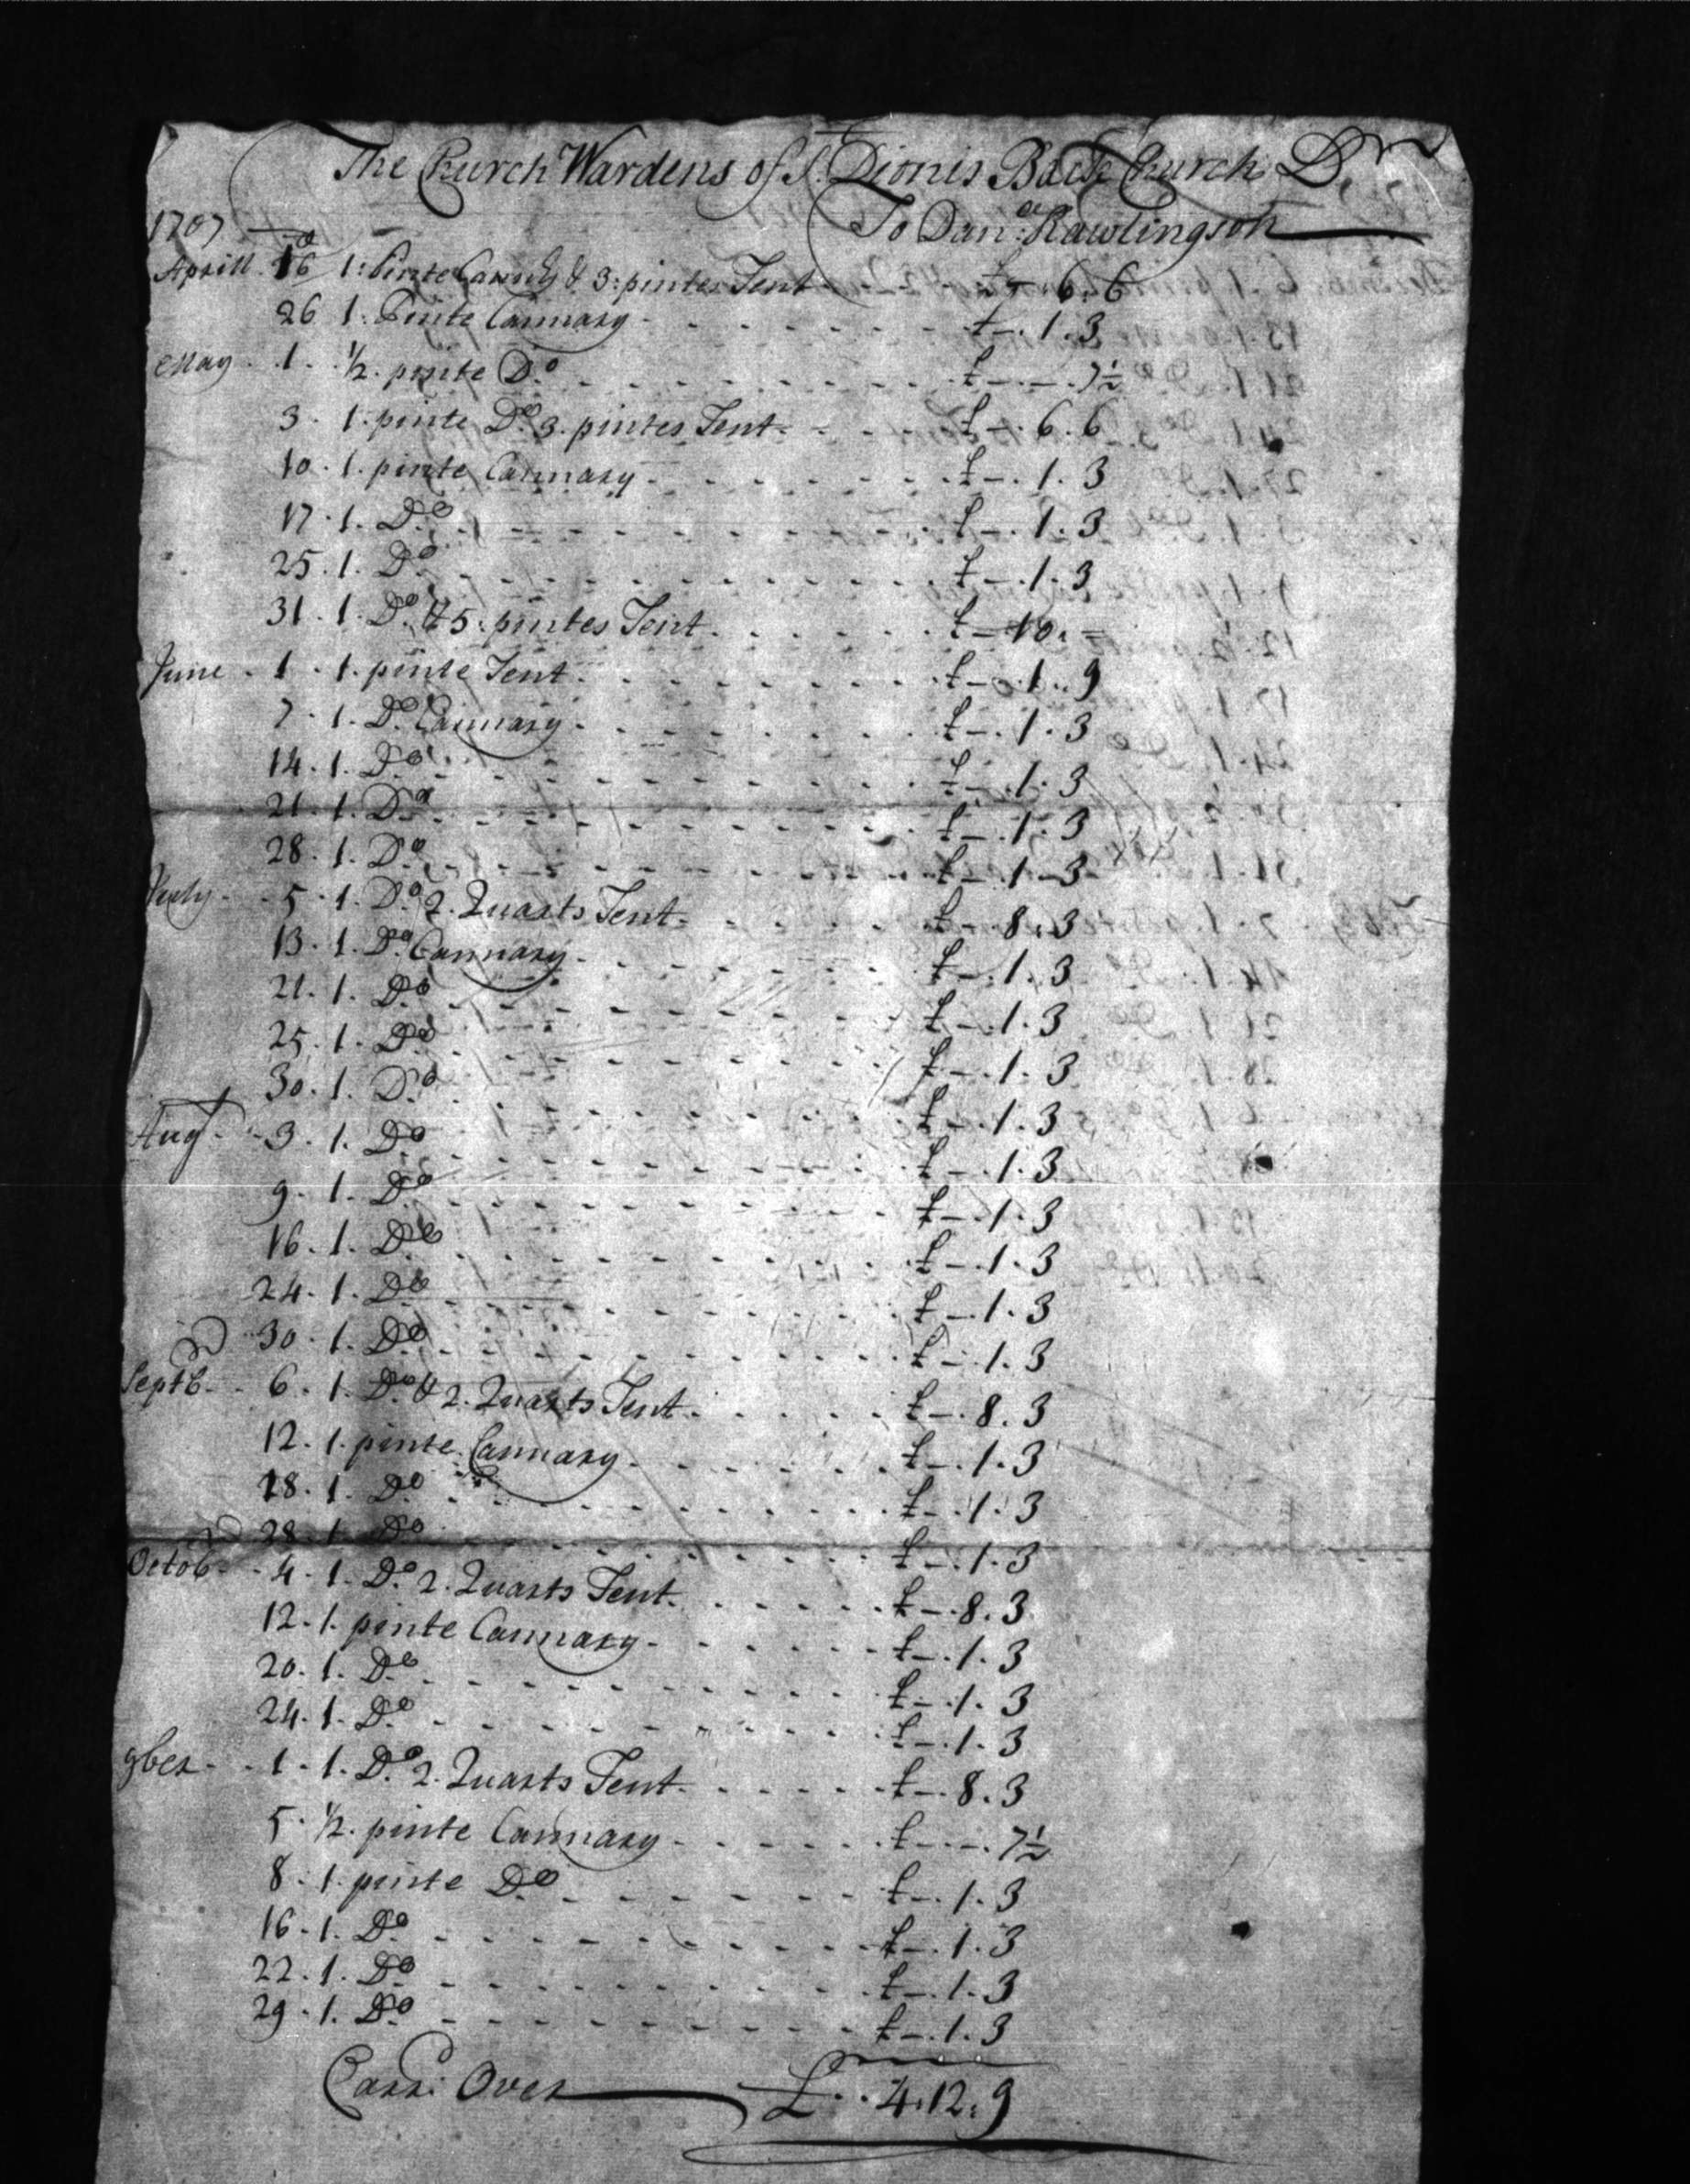 The Church Wardens of St. Dionis Back Church Dr
To Danel. Rawlingson
1707
Aprill 16 1: Pinte Canary & 3: pintes Tent £ - 6. 6
26 1. Pinte Cannary £ - . 1. 3
May . 1. ½. pinte Do £ - . - . 7½
3. 1. pinte Do. 3. pintes Tent £ - . 6. 6
10. 1. pinte Cannary £ - . 1. 3
17. 1. Do £ - . 1. 3
25. 1. Do £ - . 1. 3
31. 1. Do. & 5. pintes Tent £ - 10. =
June . 1 . 1. pinte Tent £ - . 1. 9
7. 1. Do. Cannary £ - . 1. 3
14. 1. Do £ - . 1. 3
21. 1. Do £ - . 1. 3
28. 1. Do £ - 1 - 3
July . 5. 1. Do 2. Quarts Tent £ - 8. 3
13. 1. Do. Cannary £ - . 1. 3
21. 1. Do £ - . 1. 3
25. 1. Do £ - . 1. 3
30. 1. Do £ - . 1. 3
Augt. 3. 1. Do £ - . 1. 3
9. 1. Do £ - . 1. 3
16. 1. Do £ - . 1. 3
24. 1. Do £ - 1. 3
30. 1. Do £ - . 1. 3
Septb. 6. 1. Do. & 2. Quarts Tent £ - . 8. 3
12. 1. pinte Cannary £ - . 1. 3
18. 1. Do £ - . 1. 3
28. 1. Do £ - . 1. 3
Octob . 4. 1. Do. 2. Quarts Tent £ - . 8. 3
12. 1. pinte Cannary £ - . 1. 3
20. 1. Do £ - . 1. 3
24. 1. Do £ - . 1. 3
9ber . 1. 1. Do. 2. Quarts Tent £ - . 8. 3
5. ½. pinte Cannary £ - . - . 7½
8. 1. pinte Do £ - . 1. 3
16. 1. Do £ - . 1. 3
22. 1. Do £ - . 1. 3
29. 1. Do £ - . 1. 3
Carr: Over £ . . 4. 12. 9